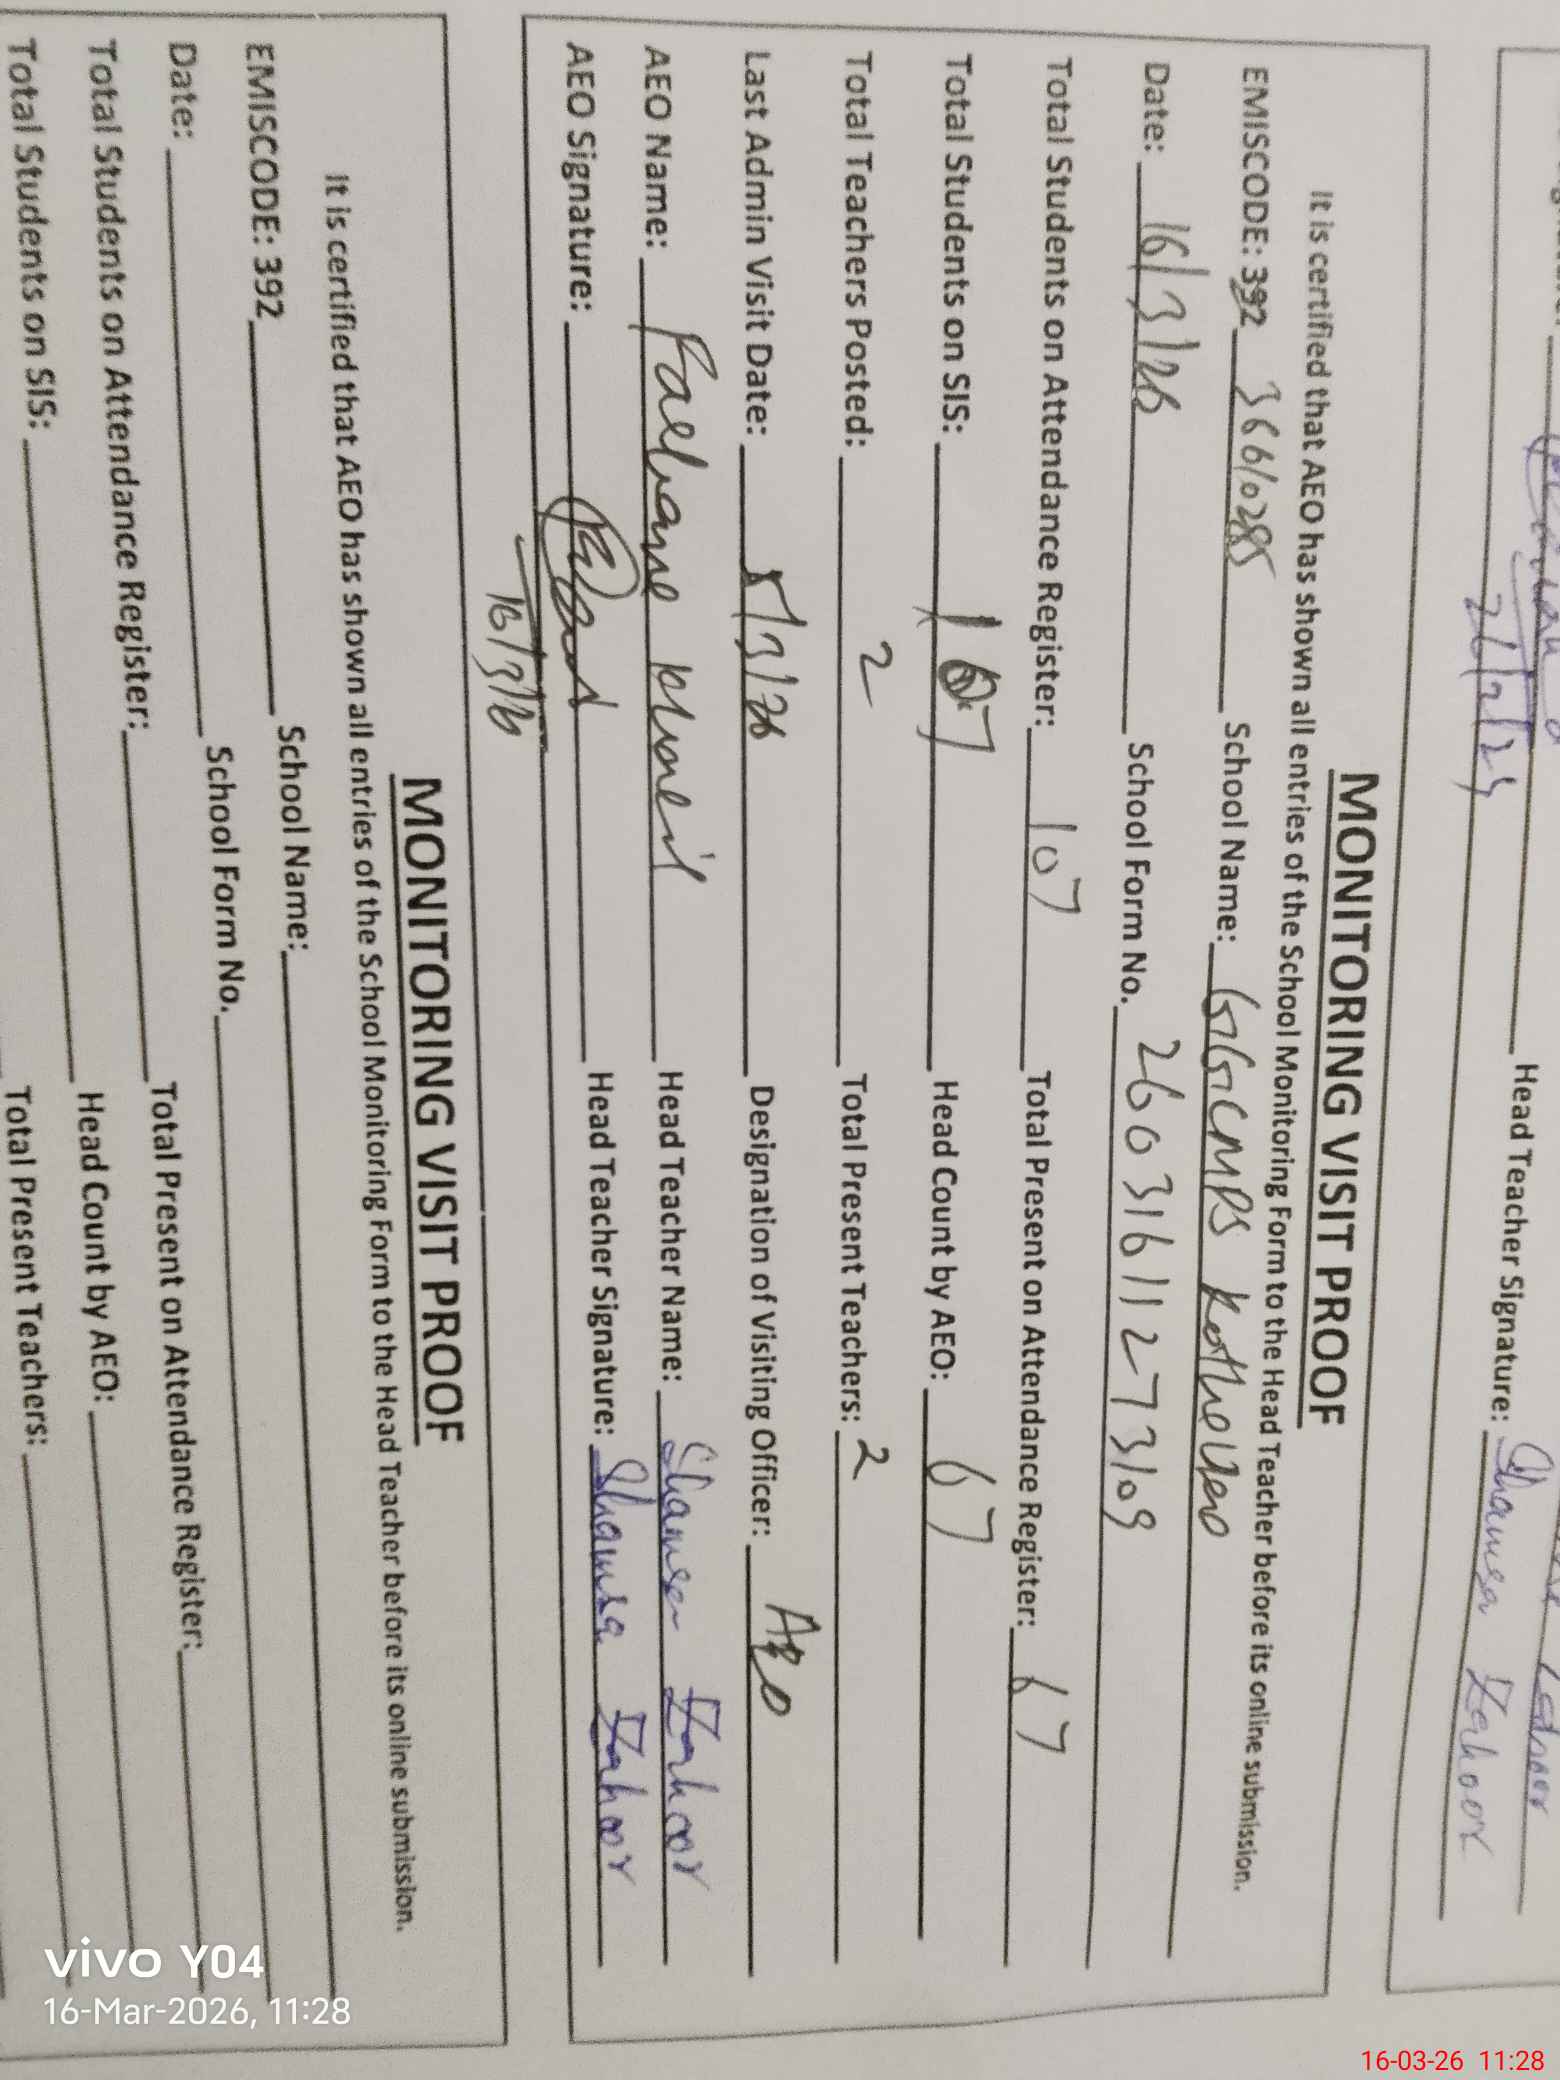 Head Teacher Signature: Shamsa Zahoor
MONITORING VISIT PROOF
It is certified that AEO has shown all entries of the School Monitoring Form to the Head Teacher before its online submission.
EMISCODE: 392 36610285 School Name: GGCMPS
Date: 16/3/26 School Form No. 26031611273109
Total Students on Attendance Register: 107 Total Present on Attendance Register: 67
Total Students on SIS: 107 Head Count by AEO: 67
Total Teachers Posted: 2 Total Present Teachers: 2
Last Admin Visit Date: /3/26 Designation of Visiting Officer: AEO
AEO Name: Head Teacher Name: Shamsa Zahoor
AEO Signature: Head Teacher Signature: Shamsa Zahoor
16/3/26
MONITORING VISIT PROOF
It is certified that AEO has shown all entries of the School Monitoring Form to the Head Teacher before its online submission.
EMISCODE: 392 School Name:
Date: School Form No.
Total Students on Attendance Register: Total Present on Attendance Register:
Total Students on SIS: Head Count by AEO:
Total Present Teachers:
vivo Y04
16-Mar-2026, 11:28
16-03-26 11:28